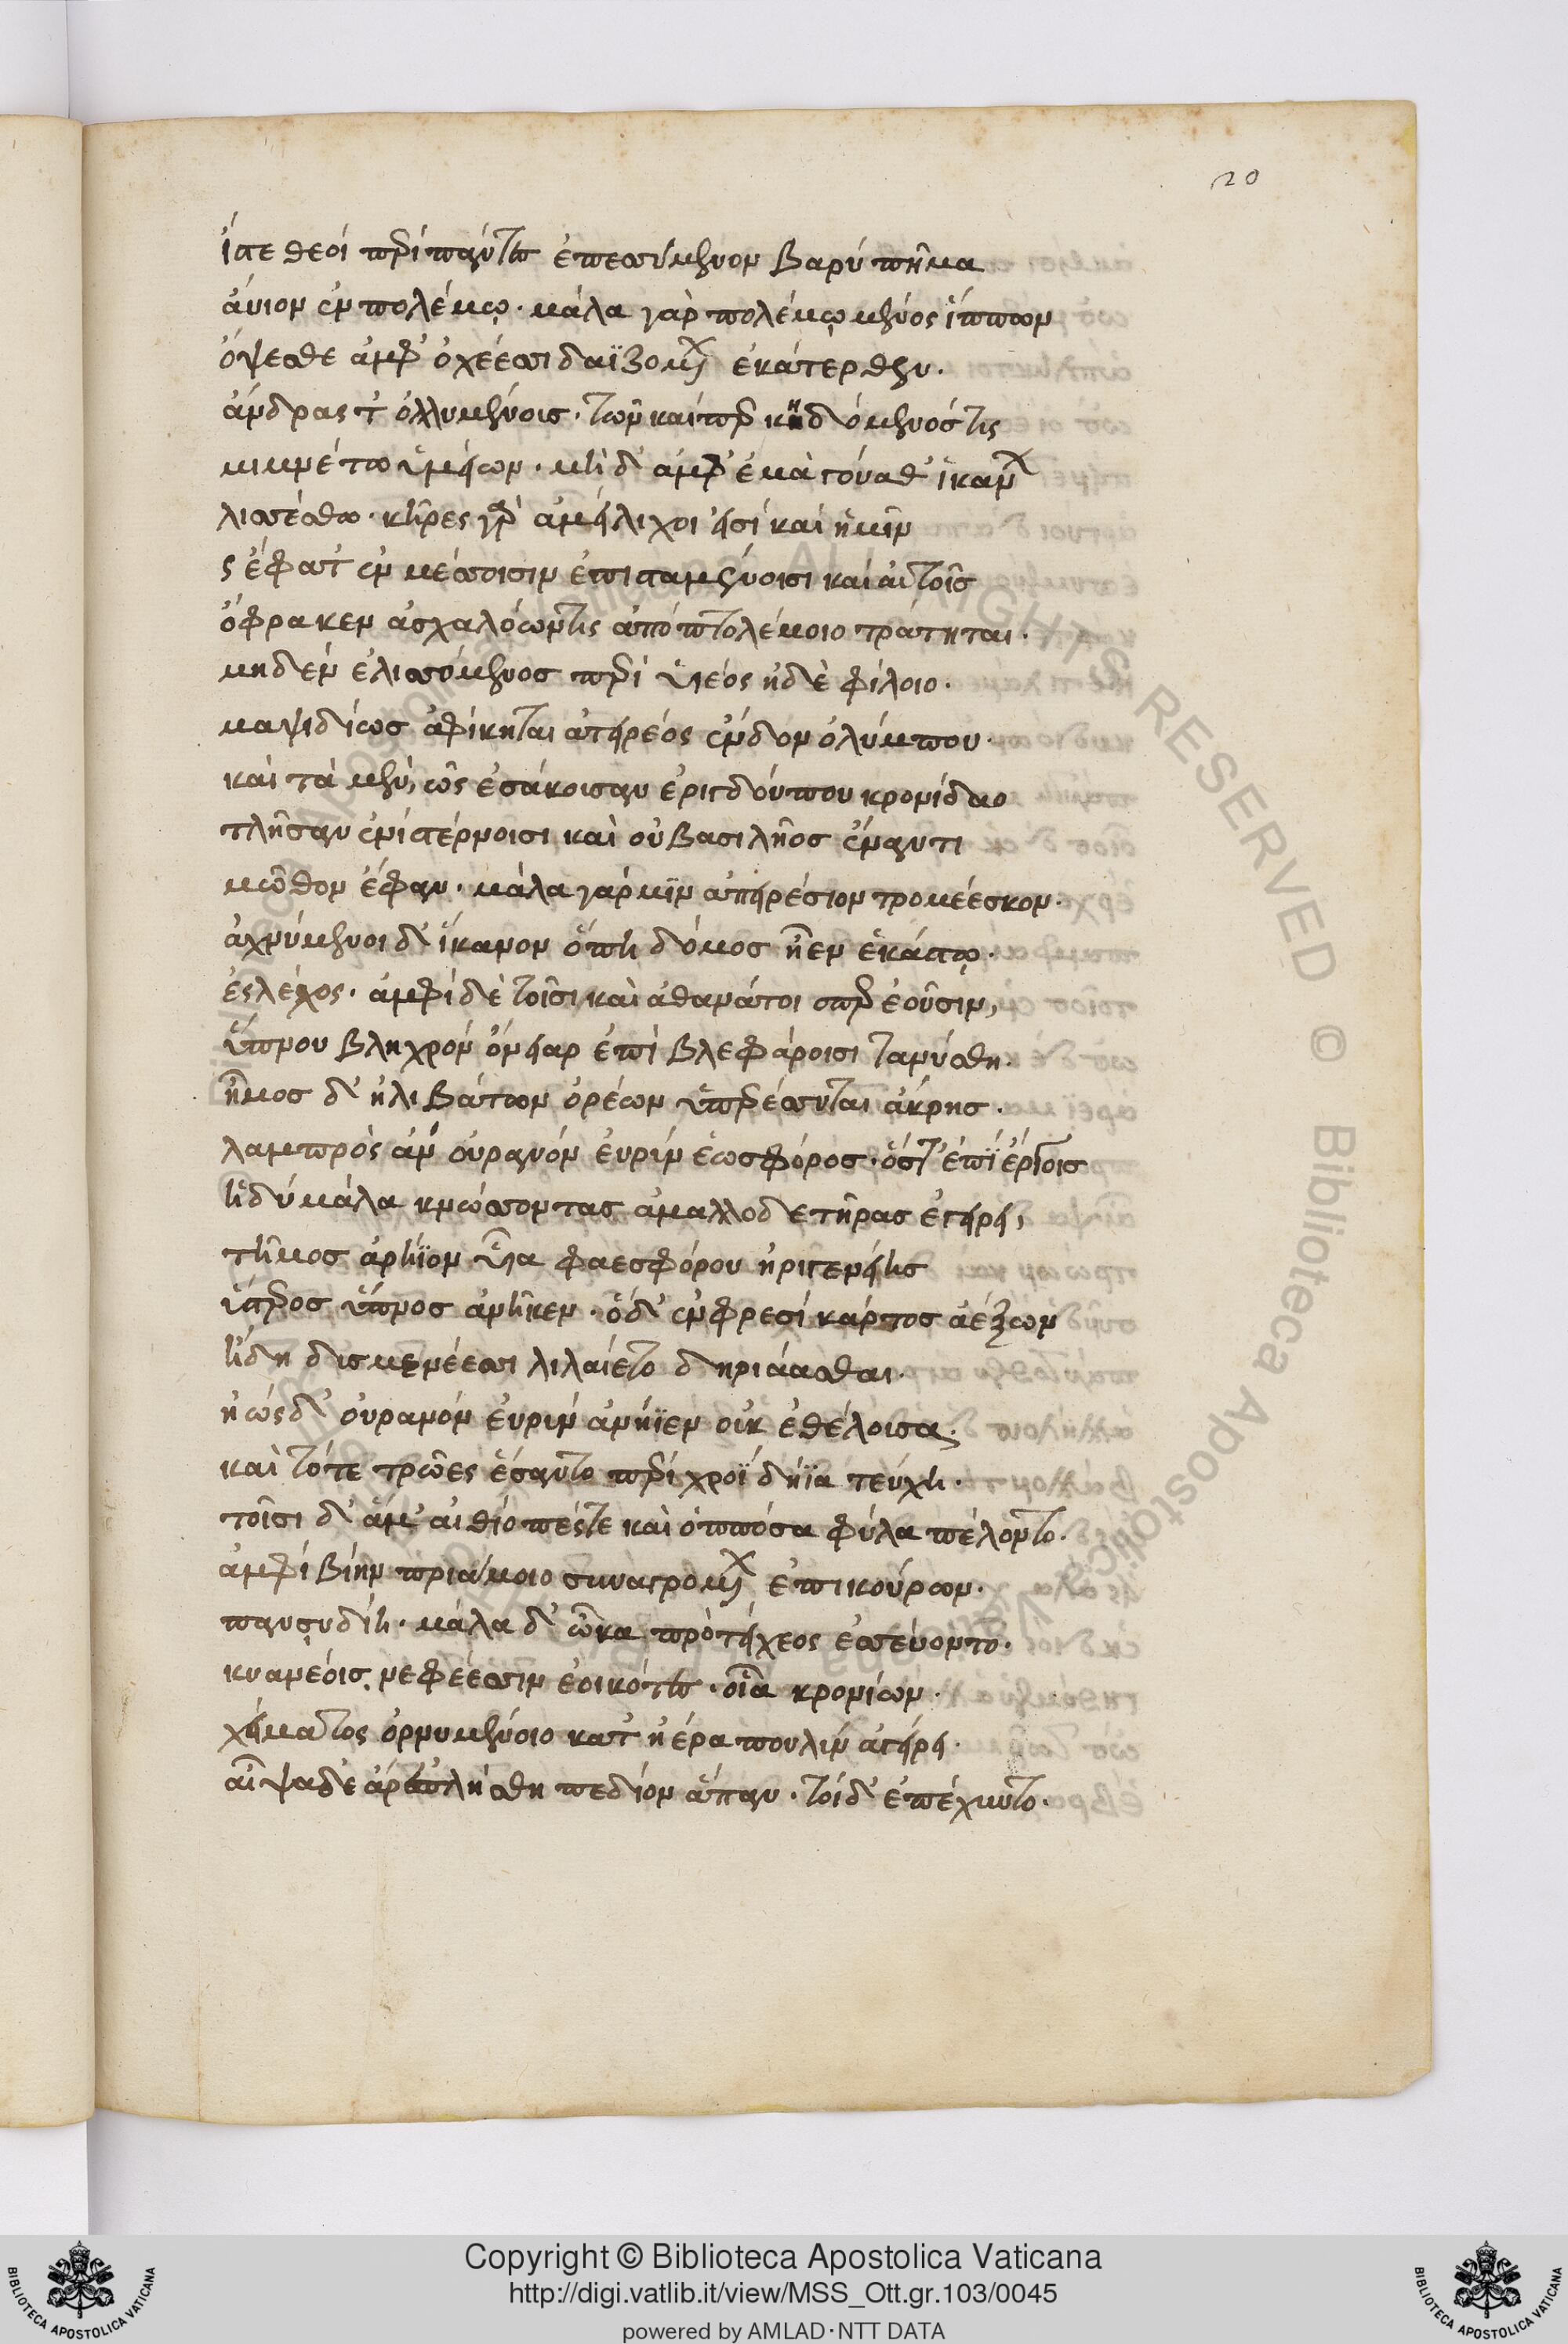 20
ἴστε θεοὶ περὶ πάντων ἐπεσσύμενον βαρὺ πῆμα
αὔριον ἐν πολέμῳ· μάλα γὰρ πολέων μένος ἵππων
ὄψεσθε ἀμφ' ὀχέεσσι δαϊζομένων ἑκάτερθεν·
ἄνδρας τ' ὀλλυμένους· τῶν καί περ κηδόμενός τις
μιμνέτω ὑμείων· μὴ δ' ἀμφ' ἐμὰ γούναθ' ἱκάνων
λισσέσθω· κῆρες γὰρ ἀμείλιχοι εἰσὶ καὶ ἡμῖν
ς ἔφατ' ἐν μέσσοισιν ἐπισταμένοισι καὶ αὐτοῖς
ὄφρα κεν ἀσχαλόωντες ἀπὸ πτολέμοιο τράπηται·
μηδέν ἑ λισσόμενος περὶ υἱέος ἠδὲ φίλοιο·
μαψιδίως ἀφίκηται ἀτειρέος ἔνδον ὀλύμπου·
καὶ τὰ μὲν ὣς ἐσάκουσαν ἐριγδούπου κρονίδαο
τλῆσαν ἐνὶ στέρνοισι καὶ οὐ βασιλῆος ἔναντι
μῦθον ἔφαν· μάλα γάρ μιν ἀπειρέσιον τρομέεσκον·
ἀχνύμενοι δ' ἵκανον ὅπῃ δόμος ἦεν ἑκάστῳ·
ἐς λέχος· ἀμφὶ δὲ τοῖσι καὶ ἀθανάτοι σπερ ἐοῦσιν,
ὕπνου βληχρὸν ὄνειαρ ἐπὶ βλεφάροισι τανύσθη·
ἦμος δ' ἠλιβάτων ὀρέων ὑπερέσσυται ἄκρης·
λαμπρὸς ἀν' οὐρανὸν εὐρὺν ἑωσφόρος· ὅς τ' ἐπὶ ἔργοις
ἡδὺ μάλα κνώσσοντας ἀμαλλοδετῆρας ἐγείρει,
τῆμος ἀρήϊον υἷα φαεσφόρου ἠριγενείης
ὕστερος ὕπνος ἀνῆκεν· ὁ δ' ἐν φρεσὶ κάρτος ἀέξων
ἤδη δυσμενέεσσι λιλαίετο δηριάασθαι·
ἠὼς δ' οὐρανὸν εὐρὺν ἀνήϊεν οὐκ ἐθέλουσα·
καὶ τότε τρῶες ἕσαντο περὶ χροῒ δήϊα τεύχη·
τοῖσι δ' ἅμ' αἰθίοπές τε καὶ ὁππόσα φῦλα πέλοντο·
ἀμφὶ βίην πριάμοιο συναγρομένων ἐπικούρων·
πανσυδίῃ· μάλα δ' ὦκα πρὸ τείχεος ἐσσεύοντο·
κυανέοις νεφέεσσιν ἐοικότες· οἷα κρονίων·
χείματος ὀρνυμένοιο κατ' ἠέρα πουλὺν ἀγείρει·
αἶψα δὲ ἄρ' ἐπλήσθη πεδίον ἅπαν· τοὶ δ' ἐπέχυντο·
Copyright © Biblioteca Apostolica Vaticana
http://digi.vatlib.it/view/MSS_Ott.gr.103/0045
powered by AMLAD·NTT DATA